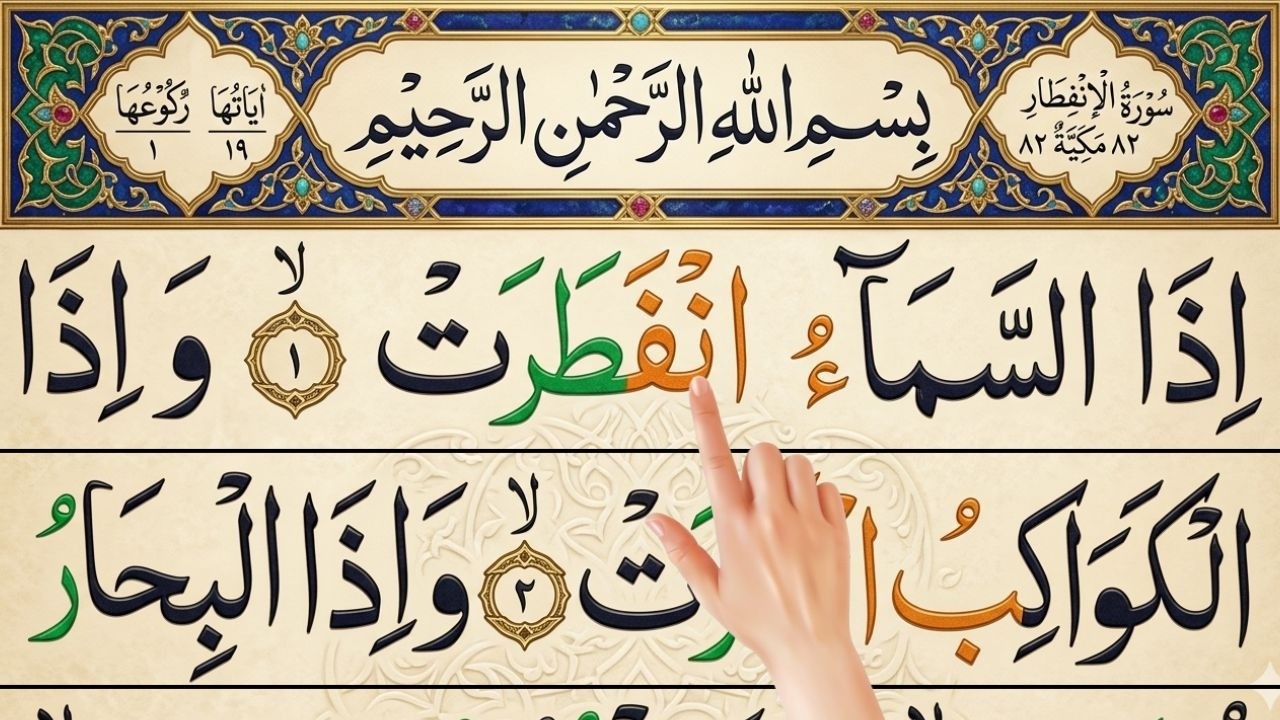 سُوْرَةُ الْاِنْفِطَارِ
٨٢ مَكِيَّةٌ ٨٢
بِسْمِ اللهِ الرَّحْمٰنِ الرَّحِيْمِ
اٰيَاتُهَا رُكُوْعُهَا
١٩ ١
اِذَا السَّمَآءُ انْفَطَرَتْ ۙ ١ وَ اِذَا
الْكَوَاكِبُ تْ ۙ ٢ وَاِذَا الْبِحَارُ